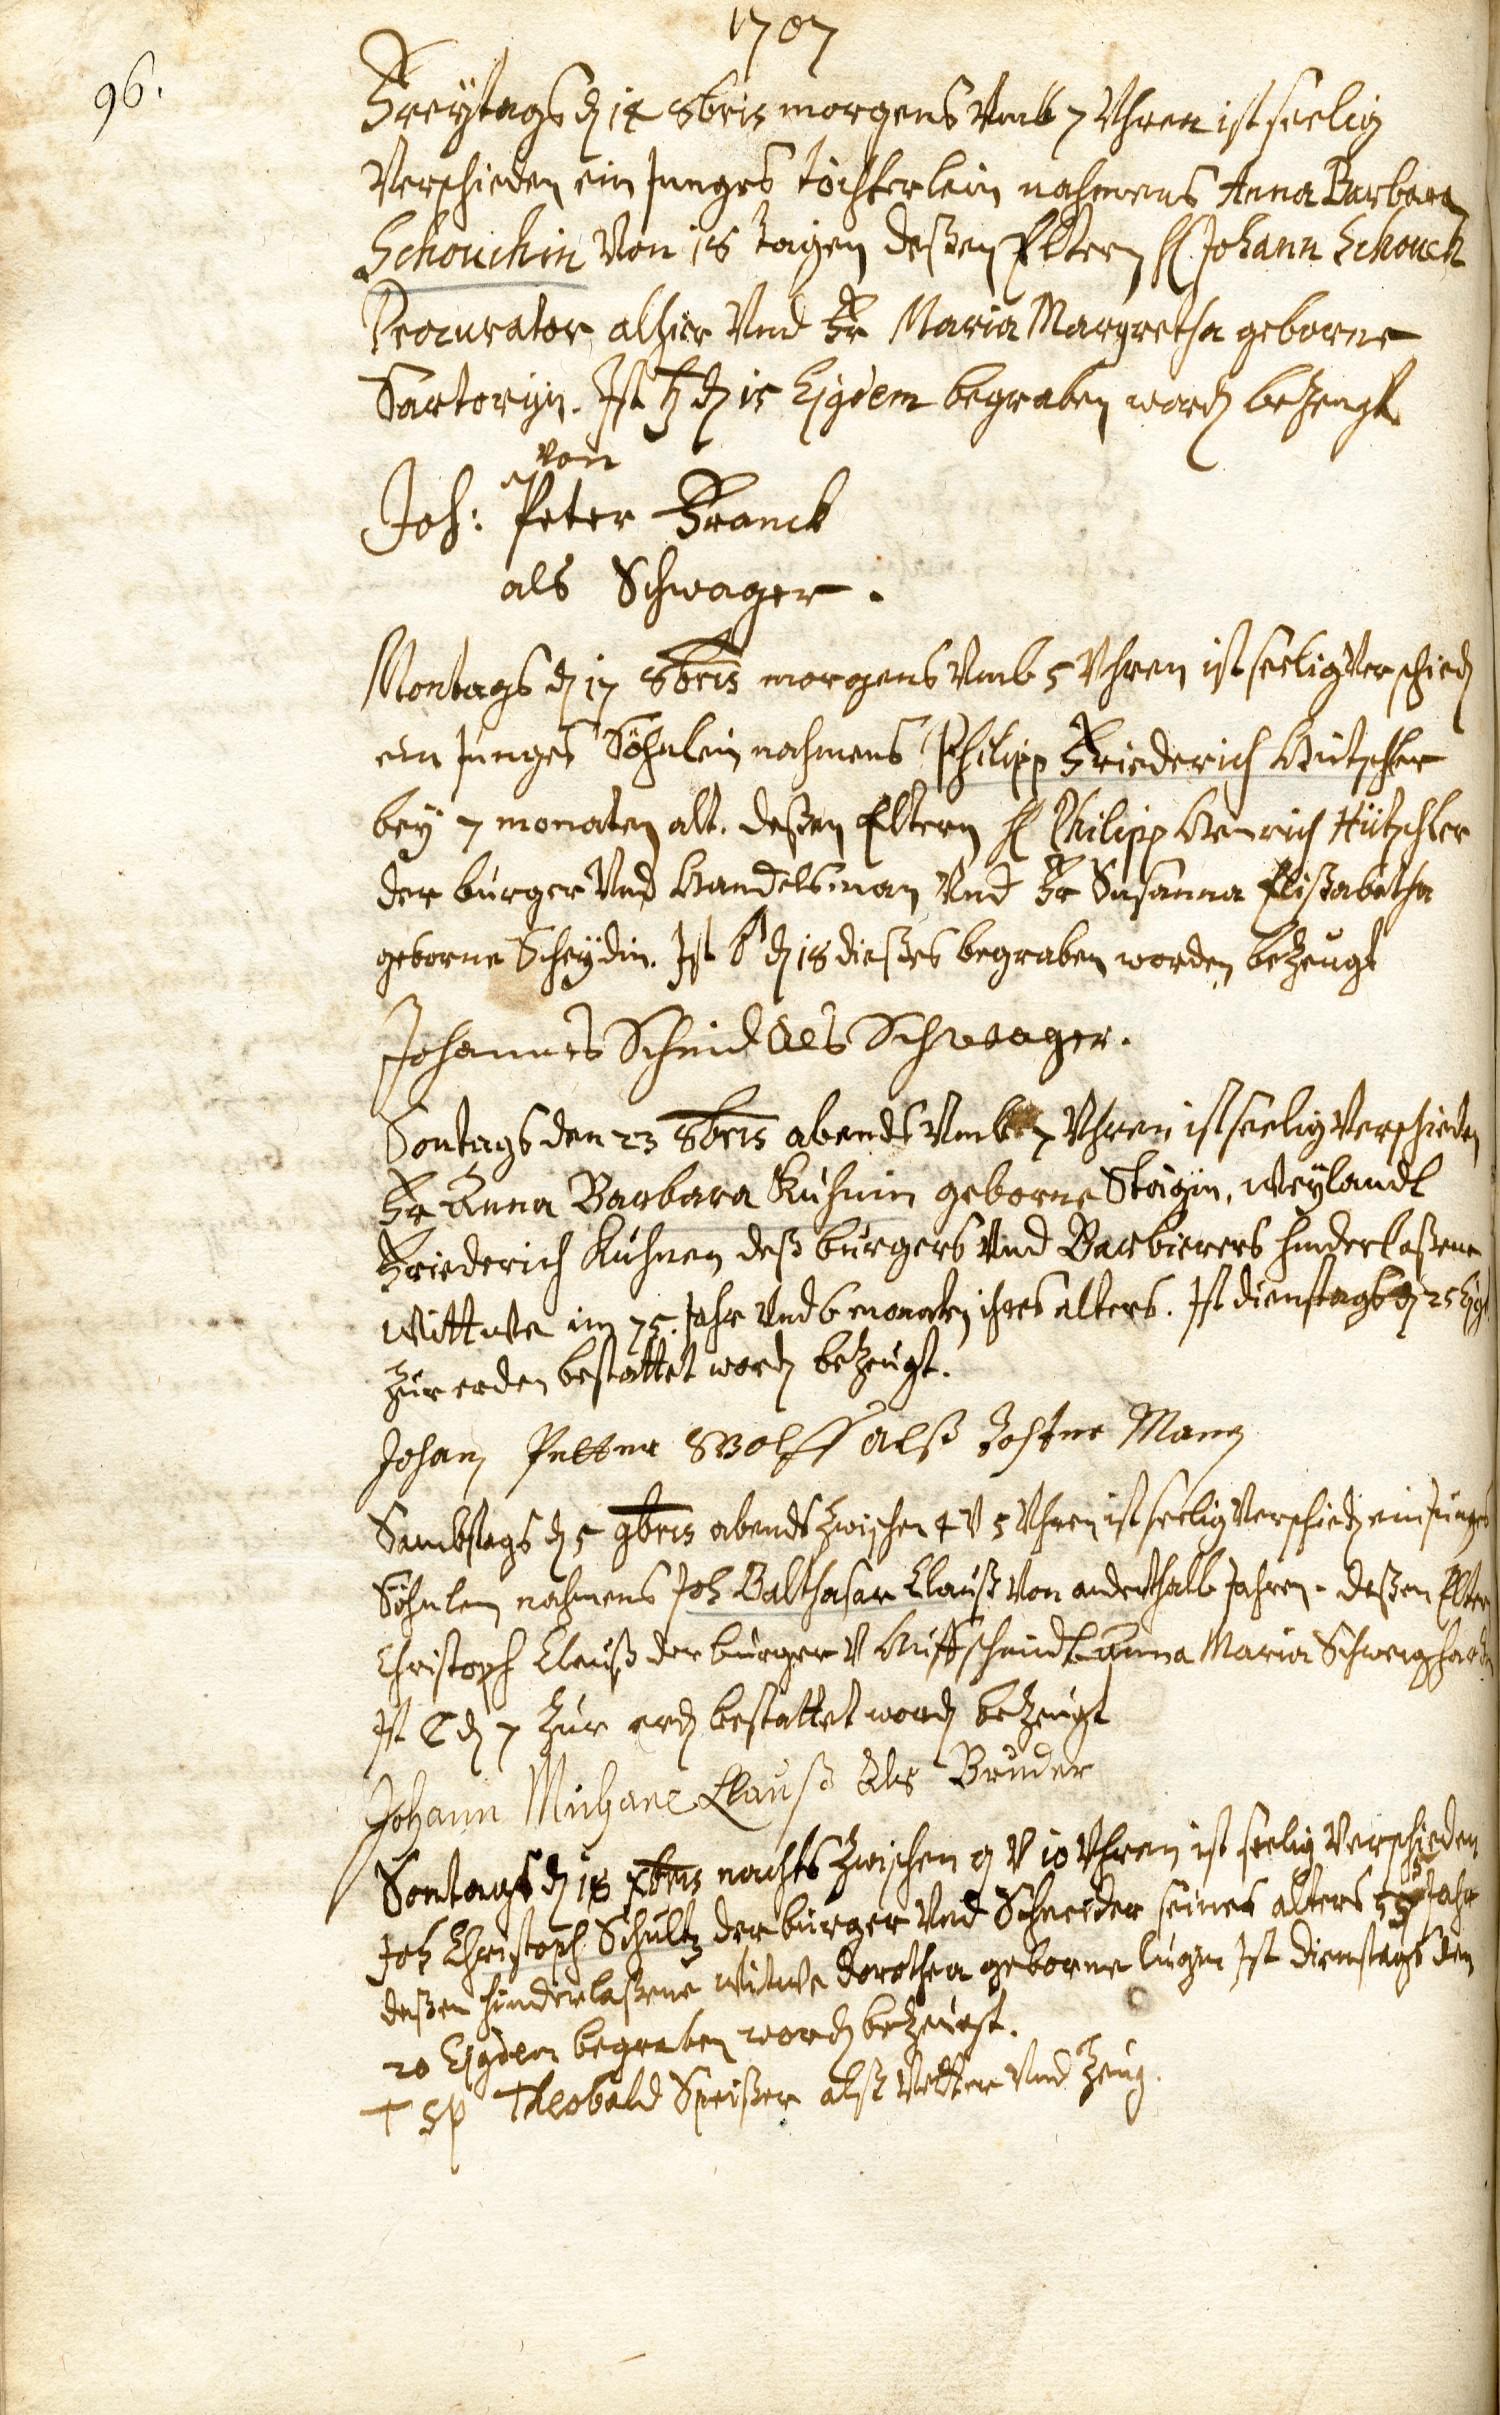 1707
96.
Freytags d 14 8bris morgens Vmb 7 Vhren ist seelig
Verschieden ein Junges töchterlein nahmens Anna Barbara
Schouckin Von 18 tagen deßen Eltern H Johann Schouck
Procurator alhier Vnd Fr Maria Margretha geborne
Sartoryin. Ist ♄ d 15 Ejgdem begraben word bezeugt
von
Joh: Peter Franck
als Schwager.
Montags d 17 8bris morgens Vmb 5 Vhren ist seelig Verschied
ein Junges Söhnlein nahmens Philipp Friederich Hütschler
bey 7 monaten alt. deßen Eltern H Philipp Henrich Hütschler
der burger Vnd Handelsman Vnd Fr Susanna Elisabetha
geborne Scheydin. Ist ♂ d 18 dießes begraben worden bezeugt
Johannes Scheid als Schwager.
Sontags den 23 8bris abends Vmb 7 Vhren ist seelig Verschieden
Fr Anna Barbara Kuhnin geborne Stägin, weylandt
Friederich Kuhnen deß burgers Vnd Barbierers hinderlaßene
Wittwe im 75. Jahr Vnd 6 monaten ihres alters. Ist dienstags d 25 Ejgd
Zur erden bestattet word bezeugt.
Johan Petter Wolff alß Tochter Man
Sambstags d 5 9bris abends Zwischen 4 V 5 Vhren ist seelig Verschied ein Junges
Söhnlein nahmens Joh Balthasar Clauß Von anderthalb Jahren. deßen Elter
Christoph Clauß der burger V Huffschmidt Anna Maria
Ist ☾ d 7 Zur erd bestattet word bezeugt
Johann Michael Clauß als Bruder
Sontags d 18 Xbris nachts Zwischen 9 V 10 Vhren ist seelig Verschieden
Joh Christoph Schultz der burger Vnd Schneider seines alters Jahr
deßen hinderlaßene Witwe Dorothea geborne Ist dienstags den
20 Ejgdem begraben word bezeugt.
T SP Theobald Speißer alß Vetter Vnd Zeug.